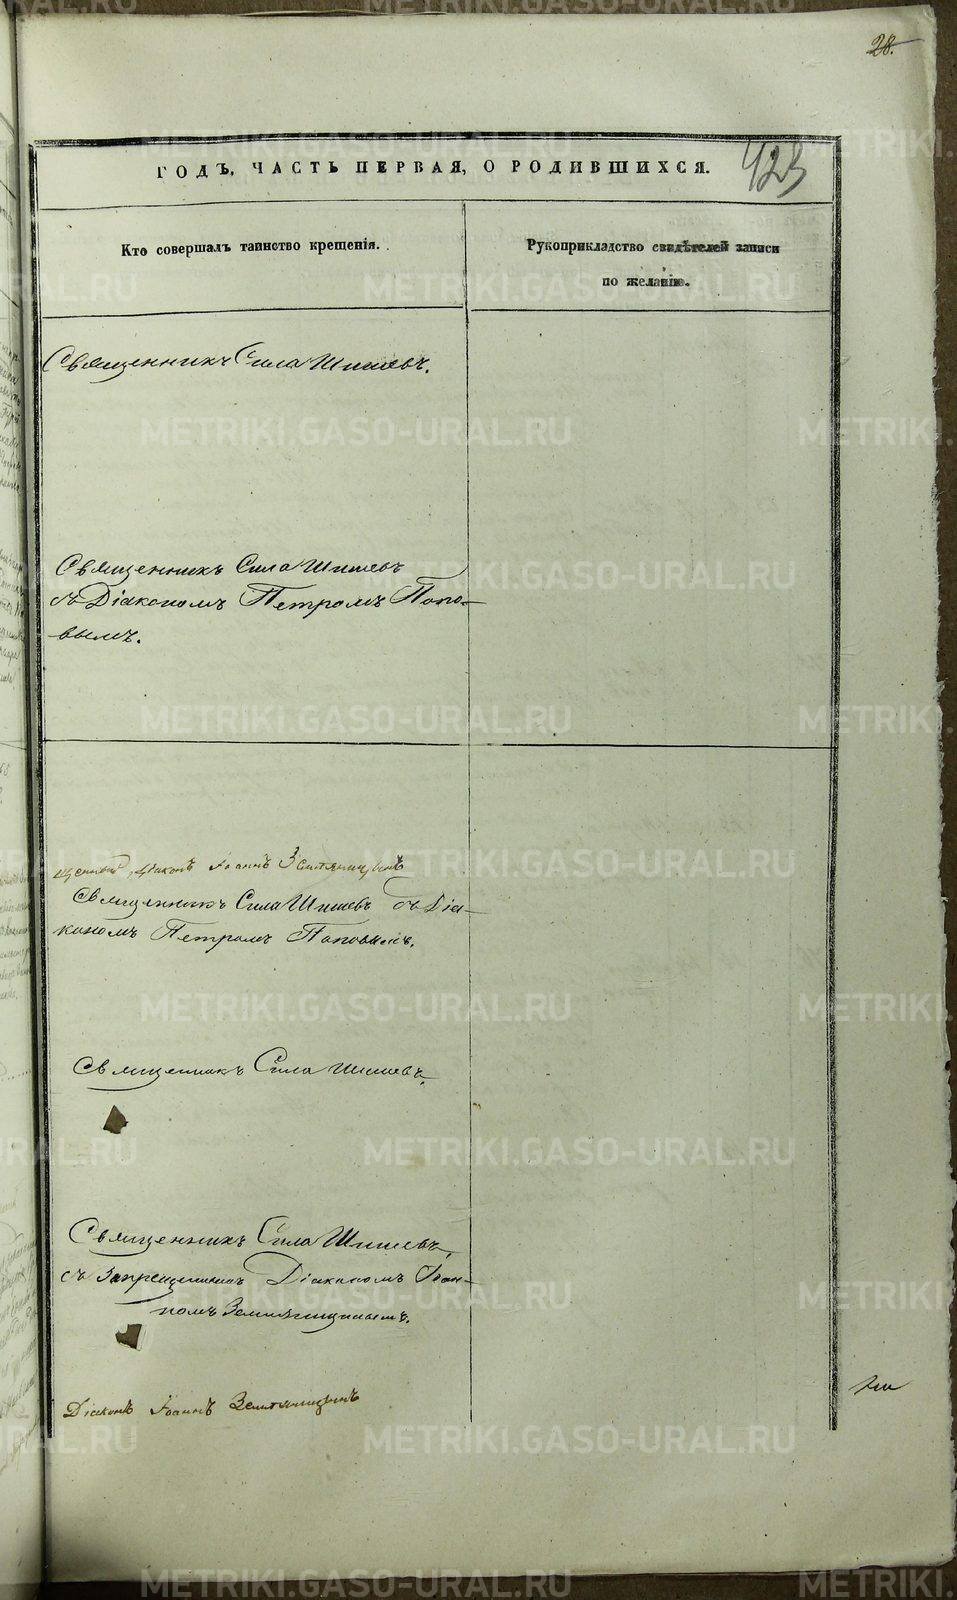 28.
ГОДЪ, ЧАСТЬ ПЕРВАЯ, О РОДИВШИХСЯ.
423
Кто совершалъ таинство крещенія.
Рукоприкладство свидѣтелей записи
по желанію.
Священникъ Сила Шишевъ.
Священникъ Сила Шишевъ
съ Діакономъ Петромъ Попо-
вымъ.
щенный Діаконъ Іоаннъ Земляницынъ
Священникъ Сила Шишевъ съ Діа-
кономъ Петромъ Поповымъ.
Священникъ Сила Шишевъ.
Священникъ Сила Шишевъ,
съ запрещеннымъ Діакономъ Іоан-
номъ Земляницынымъ.
Діаконъ Іоаннъ Земляницынъ
METRIKI.GASO-URAL.RU